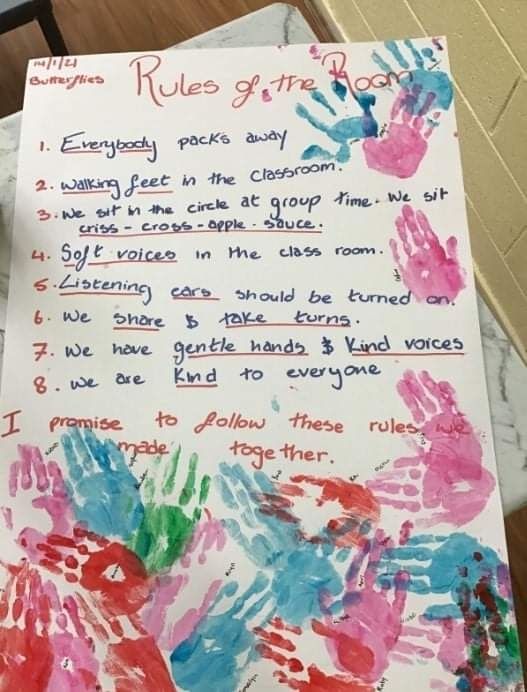 14/1/21
Butterflies
Rules of the Room
1. Everybody packs away
2. walking feet in the classroom.
3. We sit in the circle at group time. We sit
criss - cross - apple - sauce.
4. Soft voices in the class room.
5. Listening ears should be turned on.
6. We share & take turns.
7. We have gentle hands & Kind voices
8. we are Kind to everyone
I promise to follow these rules we
made together.